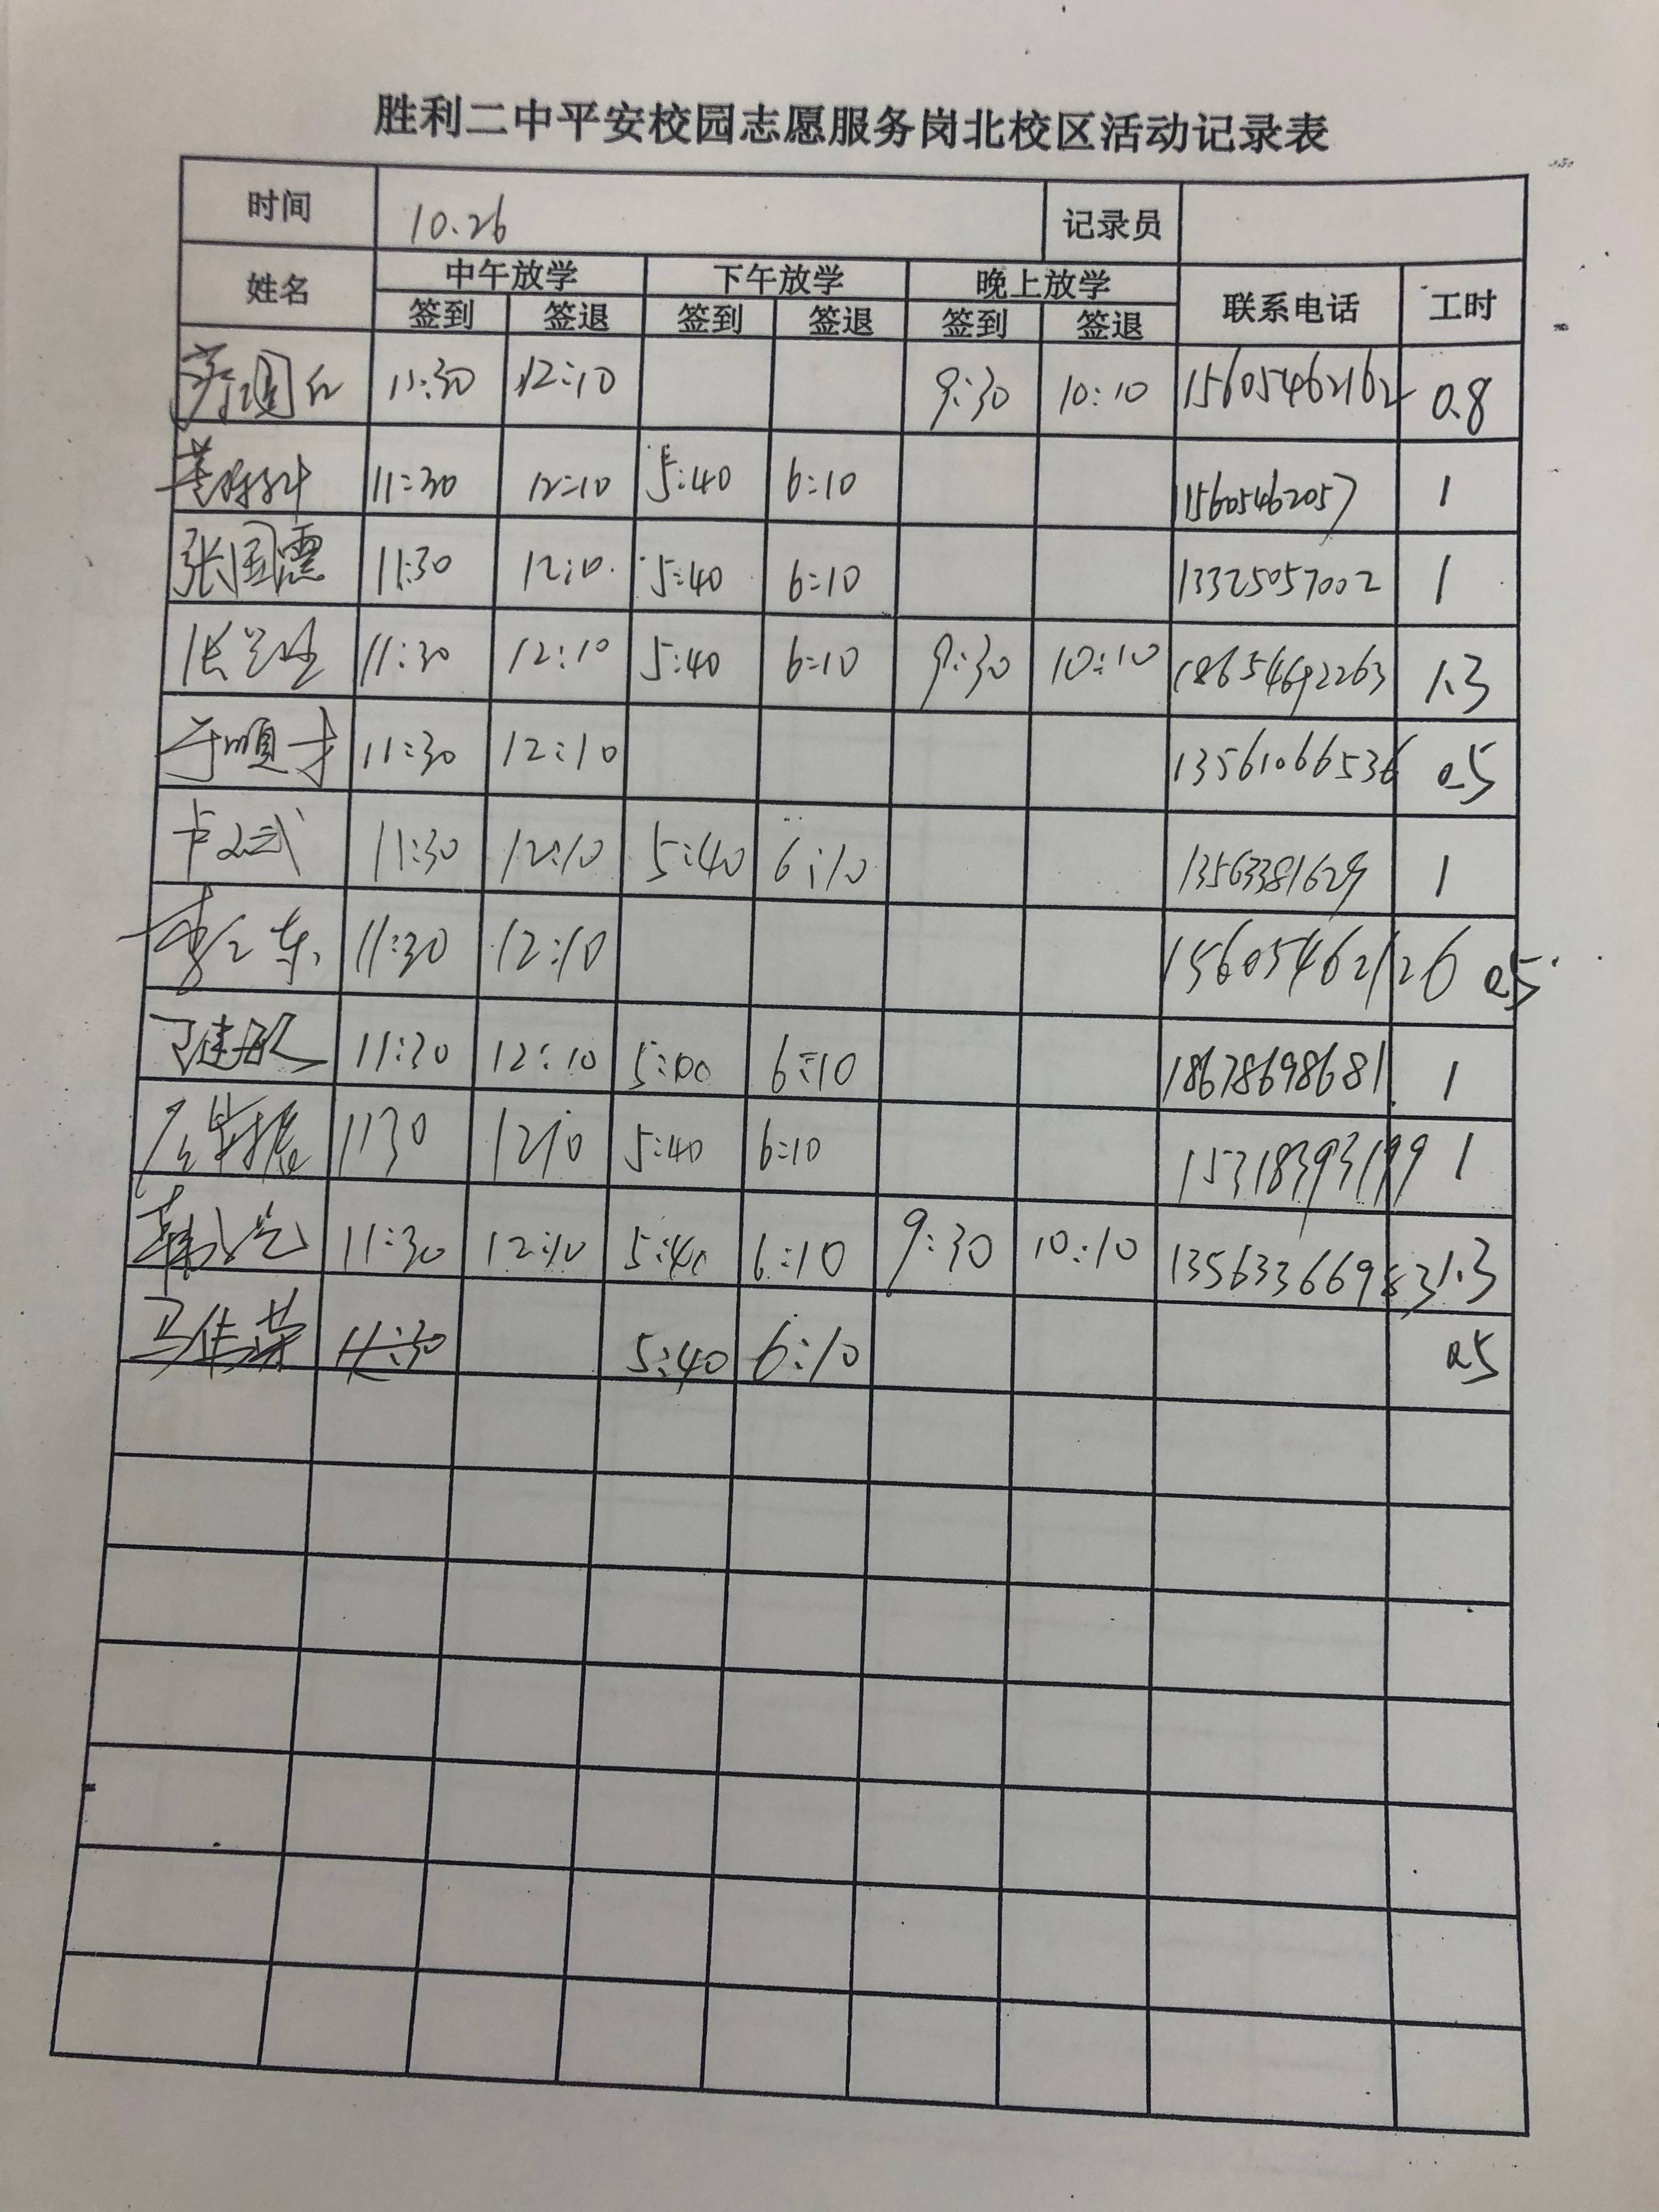 胜利二中平安校园志愿服务岗北校区活动记录表
时间 10.26 记录员
姓名 中午放学 下午放学 晚上放学 联系电话 工时
签到 签退 签到 签退 签到 签退
11:30 12:10 9:30 10:10 15605462162 0.8
11:30 12:10 5:40 6:10 15605462057 1
张国震 11:30 12:10 5:40 6:10 13325057002 1
张 11:30 12:10 5:40 6:10 9:30 10:10 18654692263 1.3
于顺才 11:30 12:10 13561066536 0.5
卞文武 11:30 12:10 5:40 6:10 13563381629 1
李 东 11:30 12:10 15605462126 0.5
11:30 12:10 5:00 6:10 18678698681 1
1130 1210 5:40 6:10 15318393199 1
韩 11:30 12:10 5:40 6:10 9:30 10:10 13563366983 1.3
马佳荣 11:30 5:40 6:10 0.5